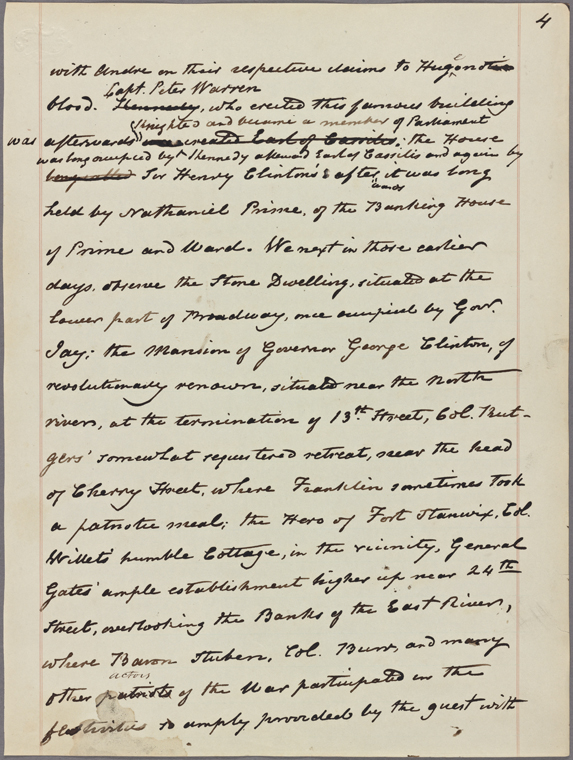 4
with Andre on their respective claims to Hugonotic
Capt. Peter Warren
blood. Kennedy, who erected this famous building
knighted and became a member of Parliament
was afterwards was created Earl of Cassilis; the House
was long occupied by Kennedy afterward Earl of Cassilis and again by
long called Sir Henry Clinton's; afterwards it was long
held by Nathaniel Prime, of the Banking House
of Prime and Ward. We next in those earlier
days, observe the Stone Dwelling, situated at the
lower part of Broadway, once occupied by Govr.
Jay; the Mansion of Governor George Clinton, of
revolutionary renown, situated near the North
rivers, at the termination of 13th Street, Col. Rut-
gers' somewhat requestered retreat, near the head
of Cherry Street, where Franklin sometimes took
a patriotic meal; the Hero of Fort Stanwix, Col.
Willets' humble Cottage, in the vicinity, General
Gates' ample establishment higher up near 24th
Street, overlooking the Banks of the East River,
where Baron Stuben, Col. Burr, and many
actors
other patriots of the War participated in the
festivities so amply provided by the guest with